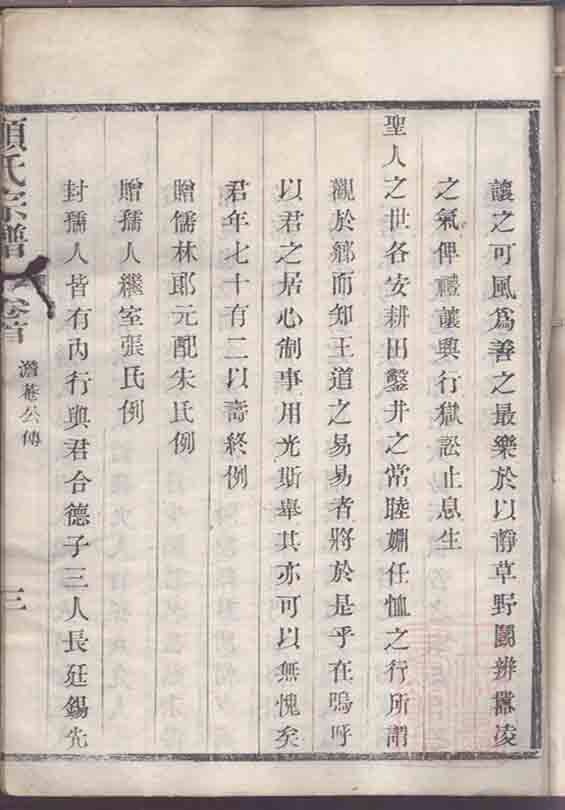 讓之可風爲善之最樂於以靜草野鬬辨囂凌
之氣俾禮讓興行獄訟止息生
聖人之世各安耕田鑿井之常睦婣任恤之行所謂
觀於鄉而知王道之易易者將於是乎在嗚呼
以君之居心制事用光斯舉其亦可以無愧矣
君年七十有二以壽終例
贈儒林郎元配朱氏例
贈孺人繼室張氏例
封孺人皆有內行與君合德子三人長廷錫先
項氏宗譜 卷首 澹菴公傳 三